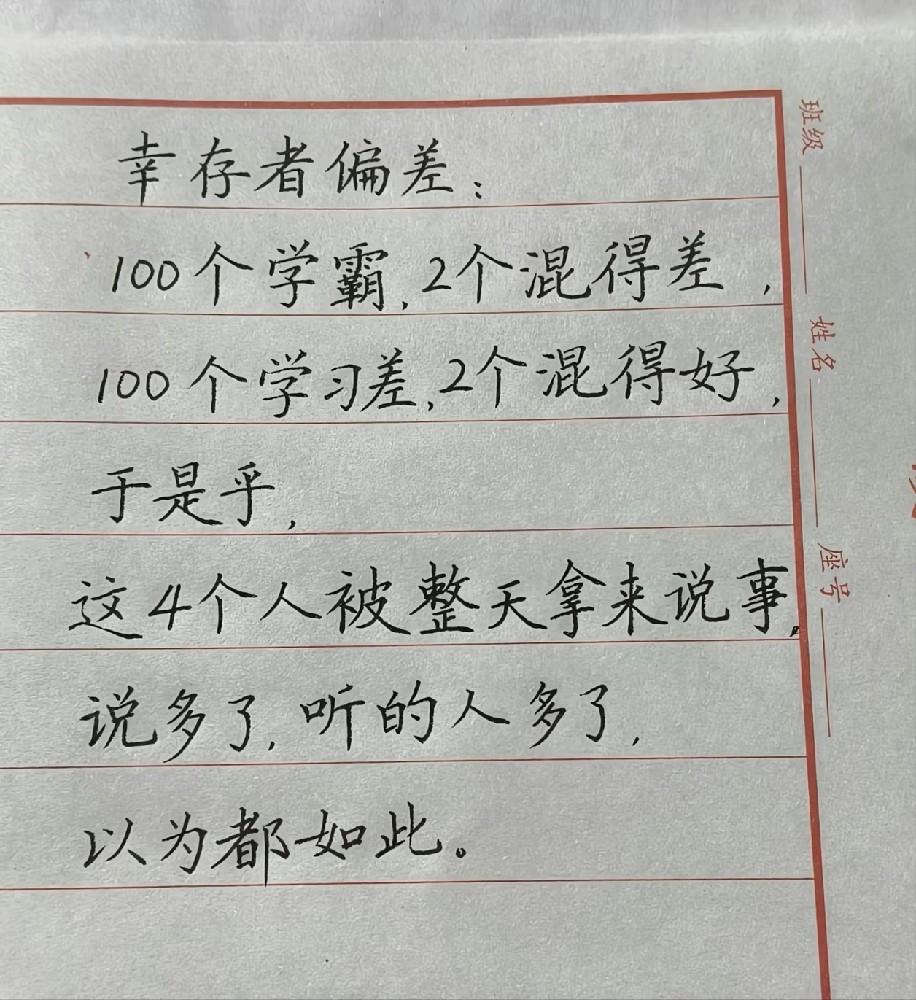 幸存者偏差：
100个学霸，2个混得差，
100个学习差，2个混得好，
于是乎，
这4个人被整天拿来说事，
说多了，听的人多了，
以为都如此。
班级
姓名
座号